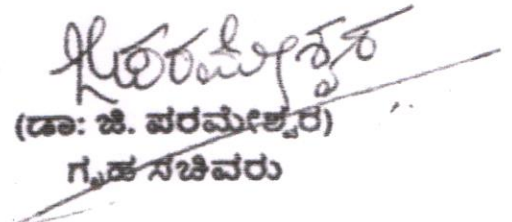 ಜಿ ಪರಮೇಶ್ವರ
(ಡಾ: ಜಿ. ಪರಮೇಶ್ವರ)
ಗೃಹ ಸಚಿವರು